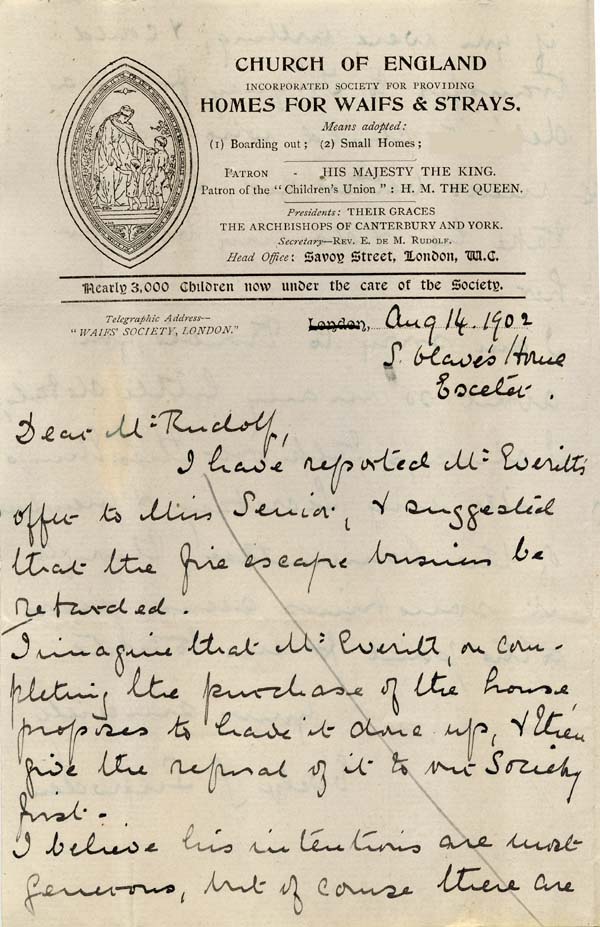 CHURCH OF ENGLAND
INCORPORATED SOCIETY FOR PROVIDING
HOMES FOR WAIFS & STRAYS.
Means adopted:
(1) Boarding out; (2) Small Homes;
PATRON - HIS MAJESTY THE KING.
Patron of the "Children's Union": H. M. THE QUEEN.
Presidents: THEIR GRACES
THE ARCHBISHOPS OF CANTERBURY AND YORK.
Secretary—REV. E. DE M. RUDOLF.
Head Office: Savoy Street, London, W.C.
Nearly 3,000 Children now under the care of the Society.
Telegraphic Address—
"WAIFS' SOCIETY, LONDON."
London, Aug 14. 1902
S. Olave's Home
Exeter.
Dear Mr. Rudolf,
I have reported Mr. Everitt's
offer to Miss Senior, & suggested
that the fire escape business be
retarded.
I imagine that Mr. Everitt, on com-
pleting the purchase of the house,
proposes to have it done up, & then
give the refusal of it to our Society
first.
I believe his intentions are most
generous, but of course there are